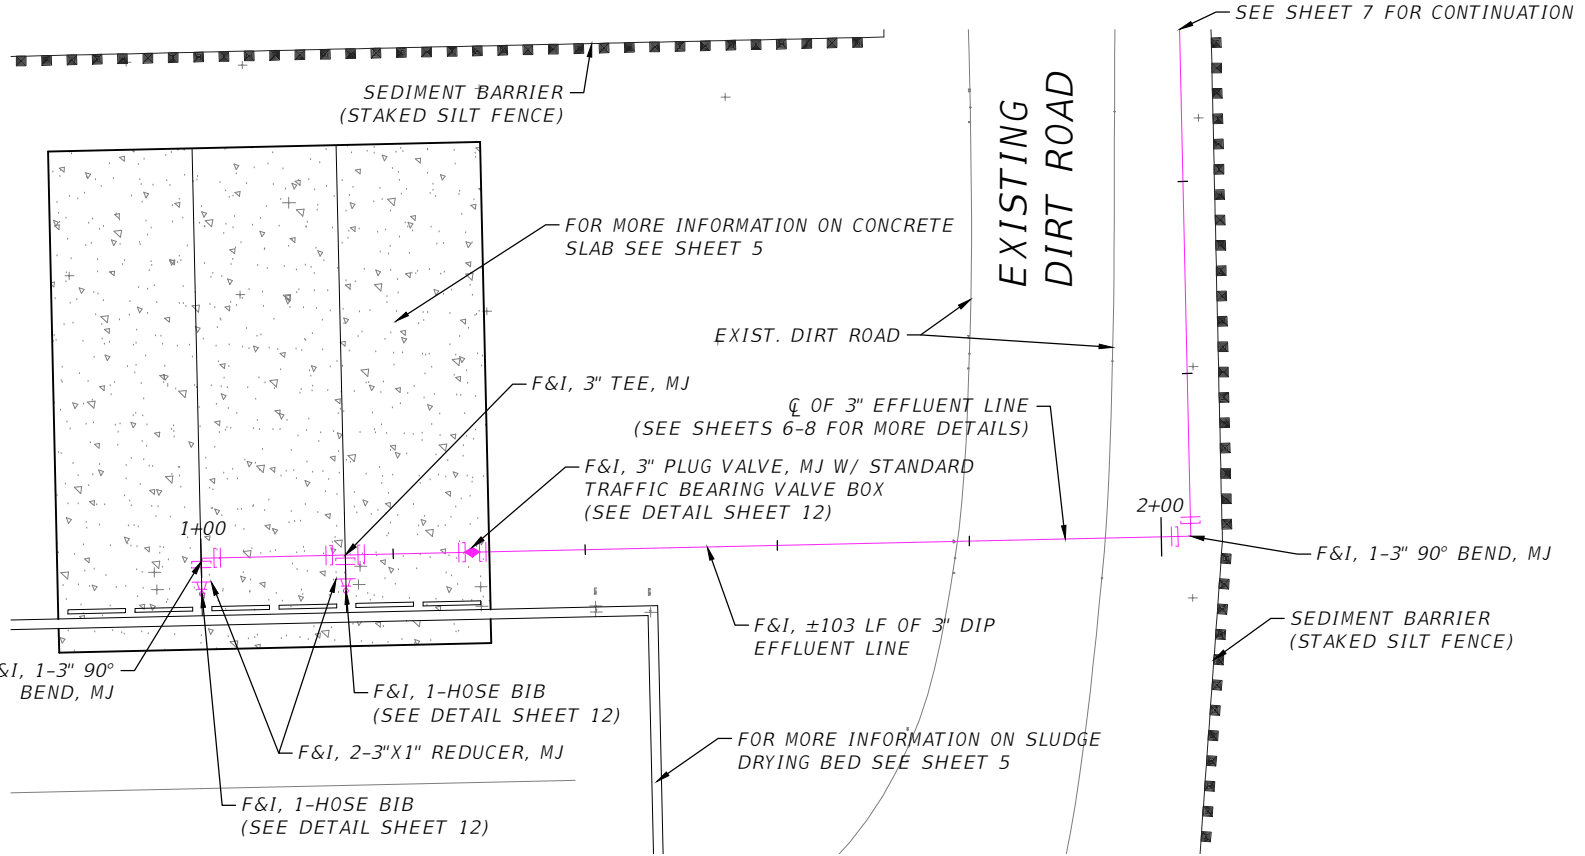 SEE SHEET 7 FOR CONTINUATION
SEDIMENT BARRIER
(STAKED SILT FENCE)
EXISTING
DIRT ROAD
FOR MORE INFORMATION ON CONCRETE
SLAB SEE SHEET 5
EXIST. DIRT ROAD
F&I, 3" TEE, MJ
℄ OF 3" EFFLUENT LINE
(SEE SHEETS 6-8 FOR MORE DETAILS)
F&I, 3" PLUG VALVE, MJ W/ STANDARD
TRAFFIC BEARING VALVE BOX
(SEE DETAIL SHEET 12)
1+00
2+00
F&I, 1-3" 90° BEND, MJ
F&I, ±103 LF OF 3" DIP
EFFLUENT LINE
SEDIMENT BARRIER
(STAKED SILT FENCE)
&I, 1-3" 90°
BEND, MJ
F&I, 1-HOSE BIB
(SEE DETAIL SHEET 12)
F&I, 2-3"X1" REDUCER, MJ
FOR MORE INFORMATION ON SLUDGE
DRYING BED SEE SHEET 5
F&I, 1-HOSE BIB
(SEE DETAIL SHEET 12)